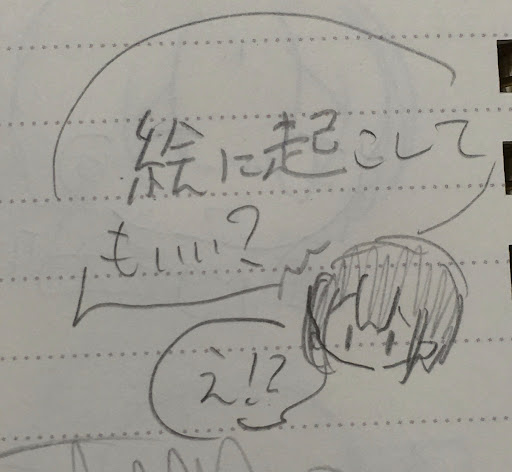 絵に起こして
もいい?
え!?